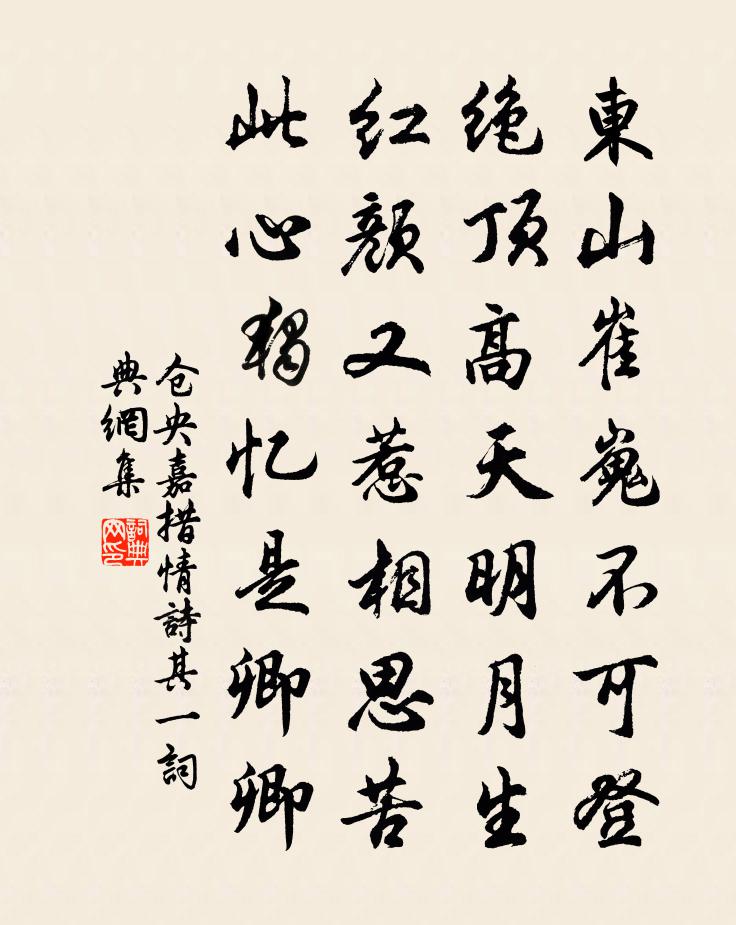 東山崔嵬不可登
绝顶高天明月生
红颜又惹相思苦
此心独忆是卿卿
仓央嘉措情詩其一詞
典網集
詞典
网印